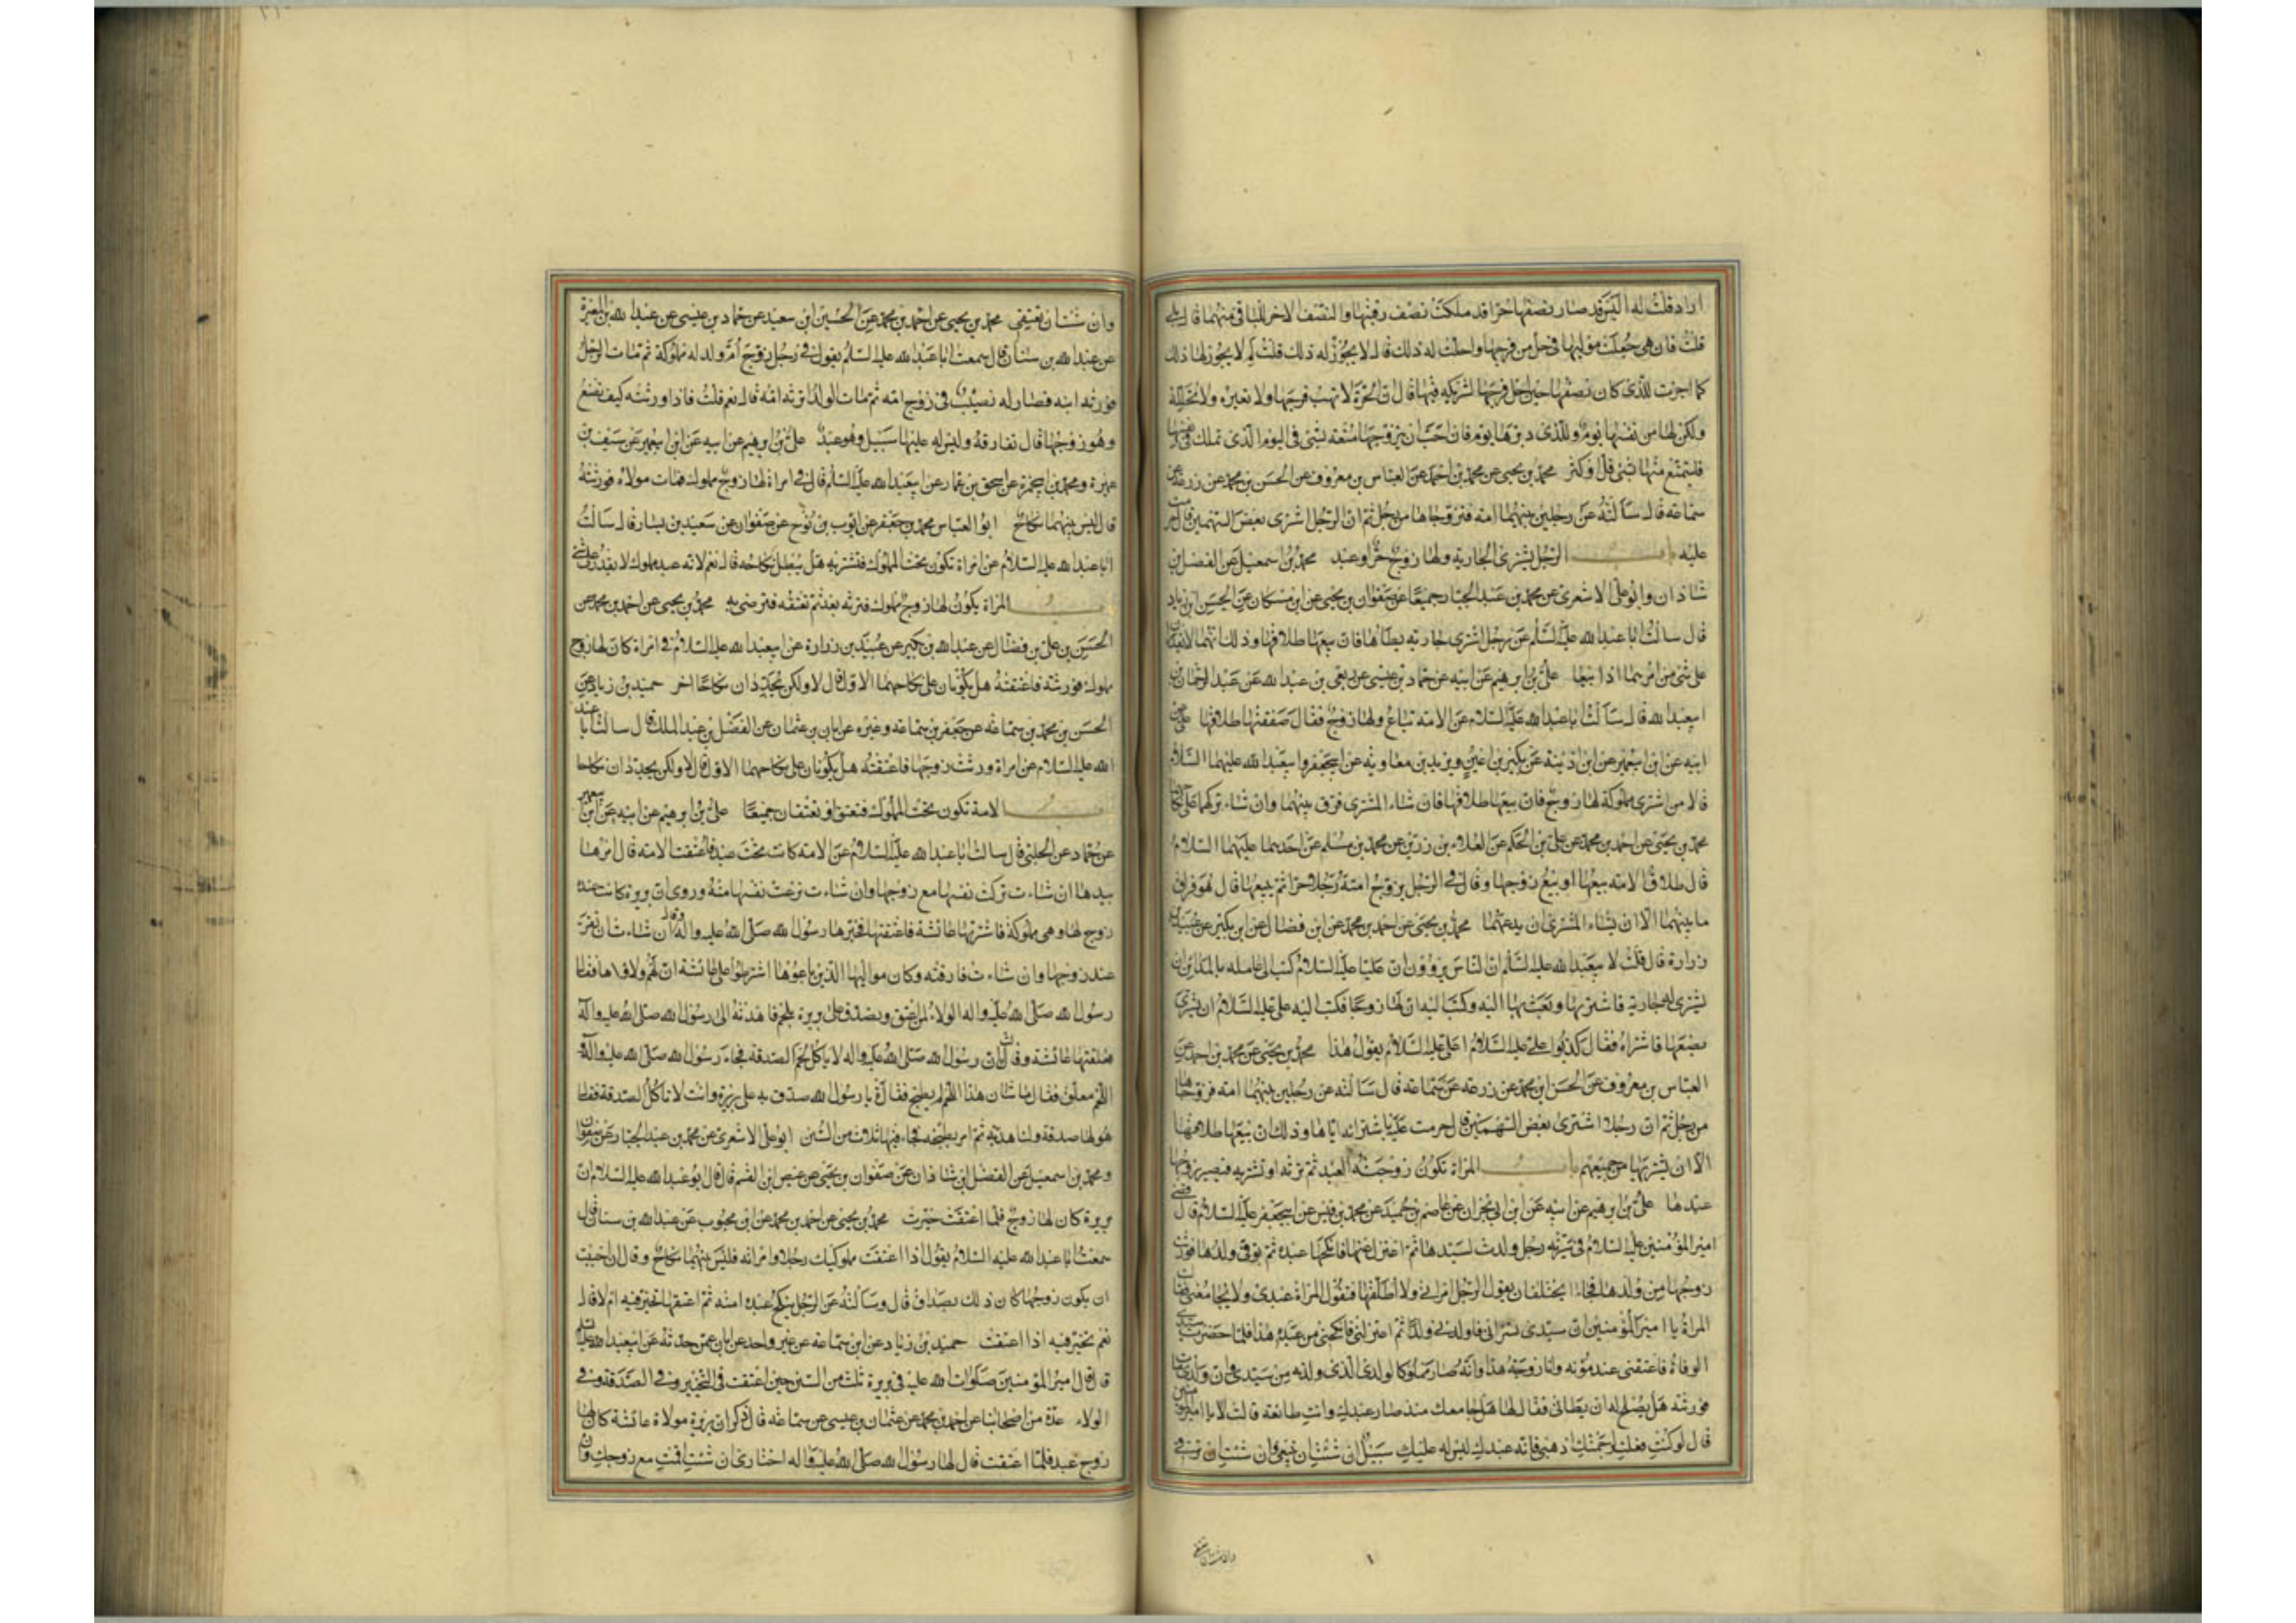 اراد قلت له اليس قد صار نصفها حرا قد ملكت نصف رقبتها والنصف الاخر للباقي منهما قال بلى
قلت فان هي جعلت مولاها في حل من فرجها واحلت له ذلك قال لا يجوز له ذلك قلت لم لا يجوز لها ذلك
كما اجزت للذي كان له نصفها حين احل فرجها لشريكه فيها قال ان الحرة لا تهب فرجها ولا تعيره ولا تحلله
ولكن لها من نفسها يوم وللذي دبرها يوم فان احب ان يتزوجها متعة بشئ في اليوم الذي تملك فيه نفسها
فليتمتع منها بشئ قل او كثر محمد بن يحيى عن محمد بن احمد عن العباس بن معروف عن الحسن بن محمد عن زرعة عن
سماعة قال سألته عن رجلين بينهما امة فزوجاها من رجل ثم ان الرجل اشترى بعض السهمين قال حرمت
عليه باب الرجل يشتري الجارية ولها زوج حر او عبد محمد بن اسمعيل عن الفضل بن
شاذان وابو علي الاشعري عن محمد بن عبد الجبار جميعا عن صفوان بن يحيى عن ابن مسكان عن الحسن بن زياد
قال سالت ابا عبد الله عليه السلام عن رجل اشترى جارية يطأها فان بيعها طلاقها وذلك انهما لا يقدران
على شئ من امرهما اذا بيعا علي بن ابرهيم عن ابيه عن حماد بن عيسى عن ربعي بن عبد الله عن عبد الرحمان بن
ابي عبد الله قال سألت ابا عبد الله عليه السلام عن الامة تباع ولها زوج فقال صفقتها طلاقها علي عن
ابيه عن ابن ابي عمير عن ابن اذينة عن بكير بن اعين وبريد بن معاوية عن ابي جعفر وابي عبد الله عليهما السلام
قالا من اشترى مملوكة لها زوج فان بيعها طلاقها فان شاء المشتري فرق بينهما وان شاء تركهما على نكاحهما
محمد بن يحيى عن احمد بن محمد عن علي بن الحكم عن العلاء بن رزين عن محمد بن مسلم عن احدهما عليهما السلام
قال طلاق الامة بيعها او بيع زوجها وقال في الرجل يزوج امته رجلا حرا ثم يبيعها قال هو فراق
ما بينهما الا ان يشاء المشتري ان يدعهما محمد بن يحيى عن احمد بن محمد عن ابن فضال عن ابن بكير عن عبيد بن
زرارة قال قلت لابي عبد الله عليه السلام ان الناس يروون ان عليا عليه السلام كتب الى عامله بالمداين ان
يشتري له جارية فاشتراها وبعث بها اليه وكتب اليه ان لها زوجا فكتب اليه علي عليه السلام ان يشتري
بضعها فاشتراه فقال كذبوا على علي عليه السلام اعلي عليه السلام يقول هذا محمد بن يحيى عن محمد بن احمد عن
العباس بن معروف عن الحسن ابن محمد عن زرعة عن سماعة قال سألته عن رجلين بينهما امة فزوجاها
من رجل ثم ان رجلا اشترى بعض السهمين قال حرمت عليه باشترائه اياها وذلك ان بيعها طلاقها
الا ان يشتريها من جميعهم باب المراة تكون زوجة العبد ثم ترثه او تشتريه فيصير زوجها
عبدها علي بن ابرهيم عن ابيه عن ابن ابي نجران عن عاصم بن حميد عن محمد بن قيس عن ابي جعفر عليه السلام قال قضى
امير المؤمنين عليه السلام في سرية رجل ولدت لسيدها ثم اعتزل عنها فانكحها عبده ثم توفي سيدها فورثت
زوجها من ولدها فجاءا يختلفان يقول الرجل امراتي ولا اطلقها فتقول المراة عبدي ولا يجامعني فقالت
المراة يا امير المؤمنين ان سيدي تسراني فاولدني ولدا ثم اعتزلني فانكحني من عبده هذا فلما حضرت سيدي
الوفاة فاعتقني عند موته وانا زوجة هذا وانه صار مملوكا لولدي الذي ولدته من سيدي وان ولدي مات
فورثته هل يصلح له ان يطاني فقال لها هل جامعك منذ صار عبدك وانت طائعة قالت لا يا امير المؤمنين
قال لو كنت فعلت لرجمتك اذهبي فانه عبدك ليس له عليك سبيل ان شئت ان تبيعي وان شئت ان ترقي
وان شئت ان تعتقي
وان شئت ان تعتقي محمد بن يحيى عن احمد بن محمد عن الحسين ابن سعيد عن حماد بن عيسى عن عبد الله بن المغيرة
عن عبد الله بن سنان قال سمعت ابا عبد الله عليه السلام يقول في رجل زوج ام ولد له مملوكه ثم مات الرجل
فورثه ابنه فصار له نصيب في زوج امه ثم مات الولد اترثه امه قال نعم قلت فاذا ورثته كيف تصنع
وهو زوجها قال تفارقه وليس له عليها سبيل وهو عبد علي بن ابرهيم عن ابيه عن ابن ابي عمير عن سيف بن
عميرة ومحمد بن ابي حمزة عن اسحق بن عمار عن ابي عبد الله عليه السلام قال في امراة لها زوج مملوك فمات مولاه فورثته
قال ليس بينهما نكاح ابو العباس محمد بن جعفر عن ايوب بن نوح عن صفوان عن سعيد بن يسار قال سألت
ابا عبد الله عليه السلام عن امراة تكون تحت المملوك فتشتريه هل يبطل نكاحه قال نعم لانه عبد مملوك لا يقدر على شئ
باب المراة يكون لها زوج مملوك فترثه بعد ثم تعتقه فترضى به محمد بن يحيى عن احمد بن محمد عن
الحسن بن علي بن فضال عن عبد الله بن بكير عن عبيد بن زرارة عن ابي عبد الله عليه السلام في امراة كان لها زوج
مملوك فورثته فاعتقته هل يكونان على نكاحهما الاول قال لا ولكن يجددان نكاحا اخر حميد بن زياد عن
الحسن بن محمد بن سماعة عن جعفر بن سماعة وغيره عن ابان بن عثمان عن الفضل بن عبد الملك قال سالت ابا عبد
الله عليه السلام عن امراة ورثت زوجها فاعتقته هل يكونان على نكاحهما الاول قال لا ولكن يجددان نكاحا
باب الامة تكون تحت المملوك فتعتق او يعتقان جميعا علي بن ابرهيم عن ابيه عن ابن ابي عمير
عن حماد عن الحلبي قال سالت ابا عبد الله عليه السلام عن الامة كانت تحت عبد فاعتقت الامة قال امرها
بيدها ان شاءت تركت نفسها مع زوجها وان شاءت نزعت نفسها منه وروى ان بريرة كانت عند
زوج لها وهي مملوكة فاشترتها عائشة فاعتقتها فخيرها رسول الله صلى الله عليه واله وقال ان شاءت ان تقر
عند زوجها وان شاءت فارقته وكان مواليها الذين باعوها اشترطوا على عائشة ان لهم ولاءها فقال
رسول الله صلى الله عليه واله الولاء لمن اعتق وتصدق على بريرة بلحم فاهدته الى رسول الله صلى الله عليه واله
فعلقتها عائشة وقالت ان رسول الله صلى الله عليه واله لا ياكل لحم الصدقة فجاء رسول الله صلى الله عليه واله و
اللحم معلق فقال ما شان هذا اللحم لم يطبخ فقالت يا رسول الله صدق به على بريرة وانت لا تاكل الصدقة فقال
هو لها صدقة ولنا هدية ثم امر بطبخه فجاء فيها ثلاث من السنن ابو علي الاشعري عن محمد بن عبد الجبار عن صفوان
ومحمد بن اسمعيل عن الفضل ابن شاذان عن صفوان بن يحيى عن عيص ابن القسم قال قال ابو عبد الله عليه السلام ان
بريرة كان لها زوج فلما اعتقت خيرت محمد بن يحيى عن احمد بن محمد عن ابن محبوب عن عبد الله بن سنان قال
سمعت ابا عبد الله عليه السلام يقول اذا اعتقت مملوكيك رجلا وامراته فليس بينهما نكاح وقال ان احببت
ان يكون زوجها كان ذلك بصداق قال وسألته عن الرجل ينكح عبده امته ثم اعتقها تخير فيه ام لا قال
نعم تخير فيه اذا اعتقت حميد بن زياد عن ابن سماعة عن غير واحد عن ابان عمن حدثه عن ابي عبد الله عليه السلام
قال قال امير المؤمنين صلوات الله عليه في بريرة ثلث من السنن حين اعتقت في التخيير وفي الصدقة وفي
الولاء عدة من اصحابنا عن احمد بن محمد عن عثمان بن عيسى عن سماعة قال ذكر ان بريرة مولاة عائشة كان لها
زوج عبد فلما اعتقت قال لها رسول الله صلى الله عليه واله اختاري ان شئت اقمت مع زوجك وان